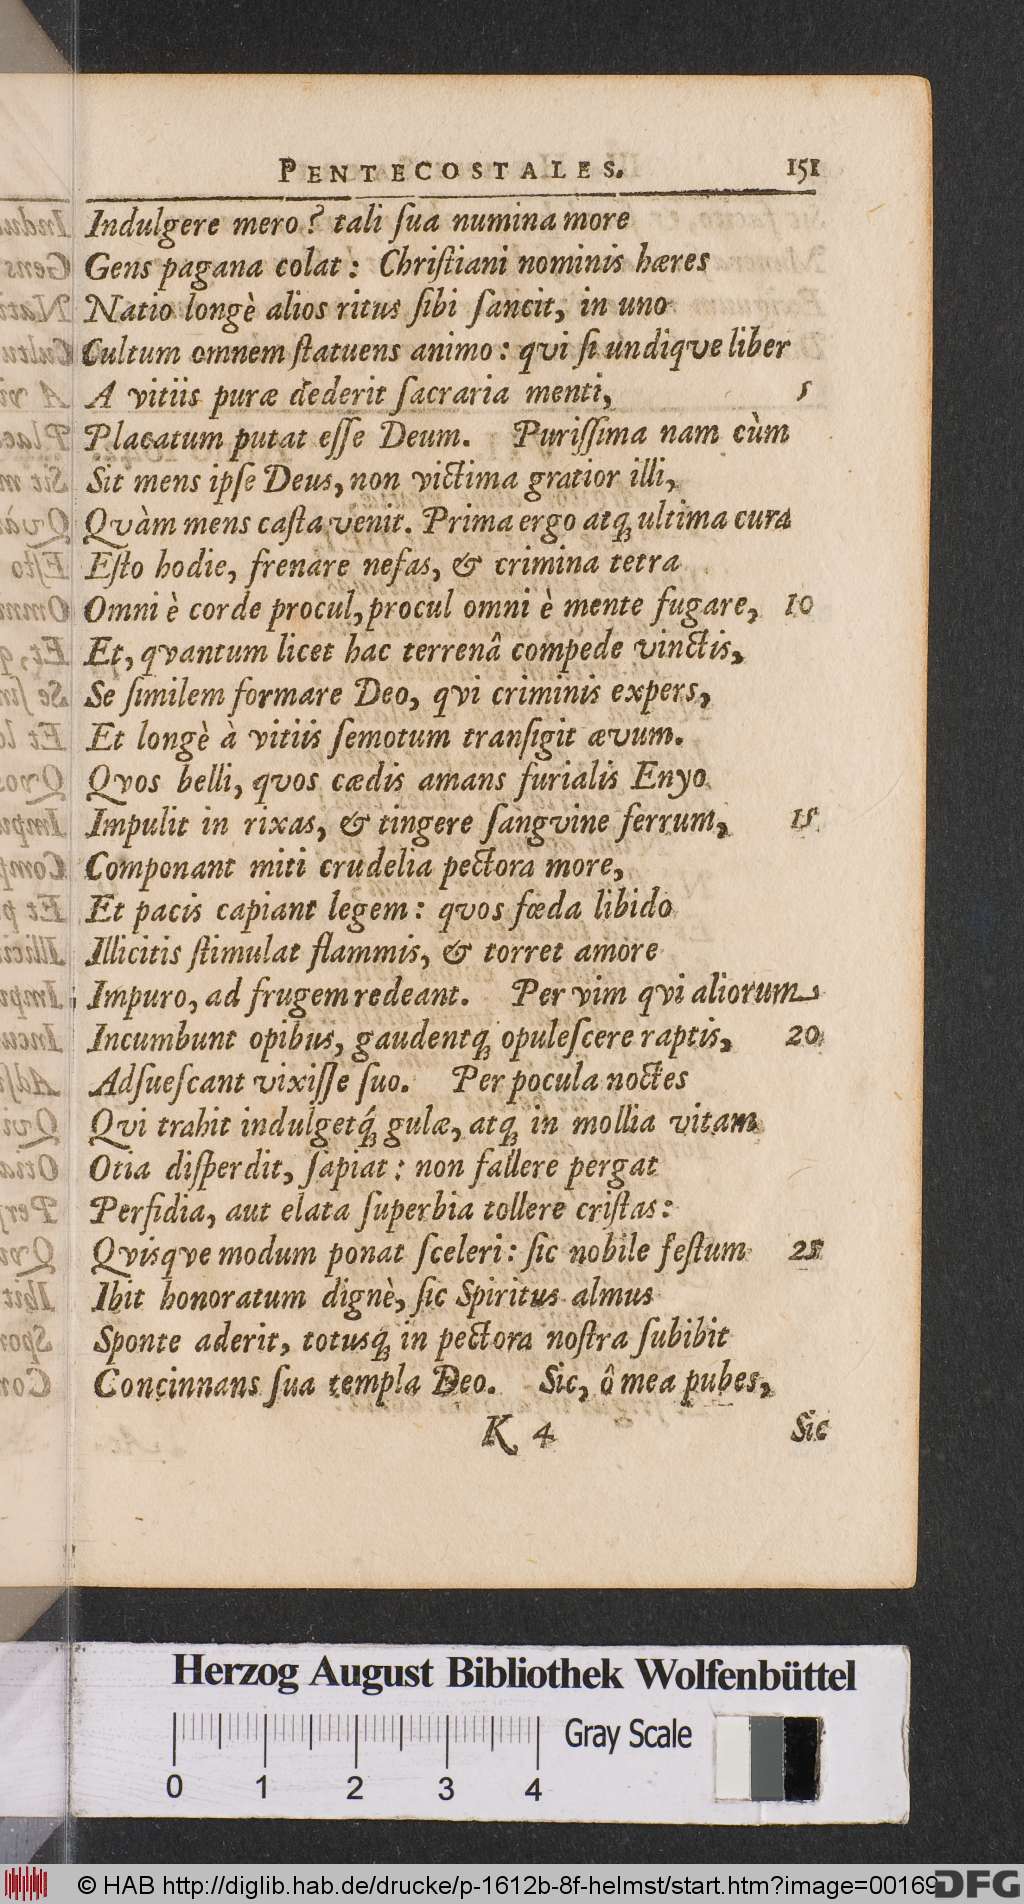 PENTECOSTALES. 151
Indulgere mero? tali ſua numina more
Gens pagana colat: Chriſtiani nominis hæres
Natio longè alios ritus ſibi ſancit, in uno
Cultum omnem ſtatuens animo: qvi ſi undiqve liber
A vitiis puræ dederit ſacraria menti, 5
Placatum putat eſſe Deum. Puriſſima nam cùm
Sit mens ipſe Deus, non victima gratior illi,
Qvàm mens caſta venit. Prima ergo atq; ultima cura
Eſto hodie, frenare nefas, & crimina tetra
Omni è corde procul, procul omni è mente fugare, 10
Et, qvantum licet hac terrenâ compede vinctis,
Se ſimilem formare Deo, qvi criminis expers,
Et longè à vitiis ſemotum tranſigit ævum.
Qvos belli, qvos cædis amans furialis Enyo
Impulit in rixas, & tingere ſangvine ferrum, 15
Componant miti crudelia pectora more,
Et pacis capiant legem: qvos fœda libido
Illicitis ſtimulat flammis, & torret amore
Impuro, ad frugem redeant. Per vim qvi aliorum
Incumbunt opibus, gaudentq; opuleſcere raptis, 20
Adſueſcant vixiſſe ſuo. Per pocula noctes
Qvi trahit indulgetq́; gulæ, atq; in mollia vitam
Otia diſperdit, ſapiat: non fallere pergat
Perfidia, aut elata ſuperbia tollere criſtas:
Qvisqve modum ponat ſceleri: ſic nobile feſtum 25
Ibit honoratum dignè, ſic Spiritus almus
Sponte aderit, totusq; in pectora noſtra ſubibit
Concinnans ſua templa Deo. Sic, ô mea pubes,
K 4 Sic
Herzog August Bibliothek Wolfenbüttel
Gray Scale
0 1 2 3 4
© HAB http://diglib.hab.de/drucke/p-1612b-8f-helmst/start.htm?image=00169
DFG